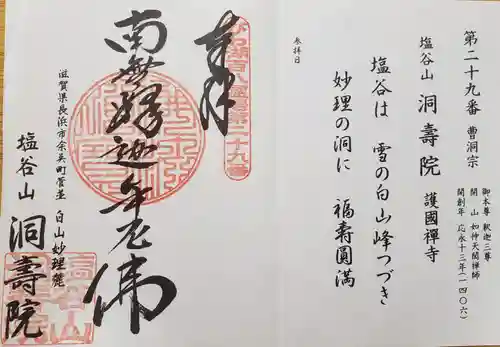 第二十九番 曹洞宗
塩谷山 洞壽院 護國禅寺
御本尊 釈迦三尊
開山 如仲天誾禅師
開創年 応永十三年(一四〇六)
塩谷は 雪の白山峰つづき
妙理の洞に 福壽圓満
参拝日
奉拝
びわ湖百八霊場第二十九番
南無釋迦牟尼佛
滋賀県長浜市余呉町菅並 白山 妙理麓
塩谷山 洞壽院